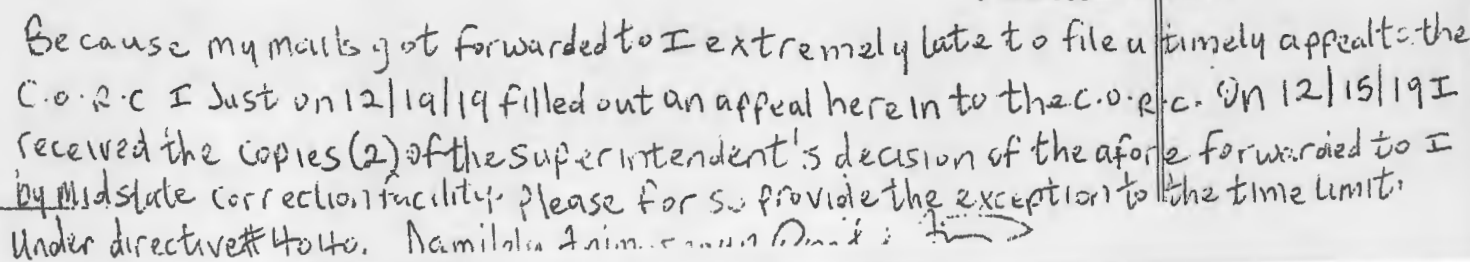 Because my mails got forwarded to I extremely late to file a timely appeal to the
C.O.R.C I Just on 12/19/19 filled out an appeal here in to the C.O.R.C. On 12/15/19 I
received the copies (2) of the superintendent's decision of the afore forwarded to I
by Midstate correction facility. Please for so provide the exception to the time limit.
Under directive # 4040. Damilola